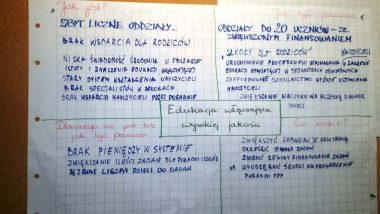 Jak jest?
ZBYT LICZNE ODDZIAŁY...
BRAK WSPARCIA DLA RODZICÓW
NISKA ŚWIADOMOŚĆ ŚRODOWISK W OBSZARZE
ISTOTY I ZNACZENIA EDUKACJI WŁĄCZAJĄCEJ
STARY SYSTEM KSZTAŁCENIA NAUCZYCIELI
BRAK SPECJALISTÓW W SZKOŁACH
BRAK WSPARCIA NAUCZYCIELI PRZEZ PORADNIE
Jak być powinno?
ODDZIAŁY DO 20 UCZNIÓW - ZE
ZWIĘKSZONYM FINANSOWANIEM
"SZKOŁY DLA RODZICÓW"
URUCHOMIENIE PROCESOWEGO
EDUKACJI WŁĄCZAJĄCEJ W JEDNOSTKACH OŚWIATOWYCH
ZREFORMOWANIE SZKOLNICTWA WYŻSZEGO KSZTAŁCĄCEGO
NAUCZYCIELI
ZWIĘKSZENIE NACISKU NA WCZESNĄ DIAGNOZĘ
DZIECI
Edukacja włączająca
wysokiej jakości
Dlaczego nie jest tak
jak być powinno?
BRAK PIENIĘDZY W SYSTEMIE
ZWIĘKSZANIE ILOŚCI ZADAŃ DLA PORADNI I SZKÓŁ
WZROST LICZBY DZIECI DO BADAŃ
Co zrobić?
ZWIĘKSZYĆ SUBWENCJĘ OŚWIATOWĄ
OKREŚLIĆ STANDARD ZADAŃ
ZMIANA REGUŁY FINANSOWANIA ZADAŃ
WYODRĘBNIĆ ŚRODKI NA PROWADZENIE
PORADNI PPP